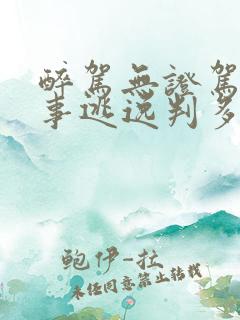 醉駕無證駕
事逃逸判多
鲍伊-拉
未经同意禁止转载